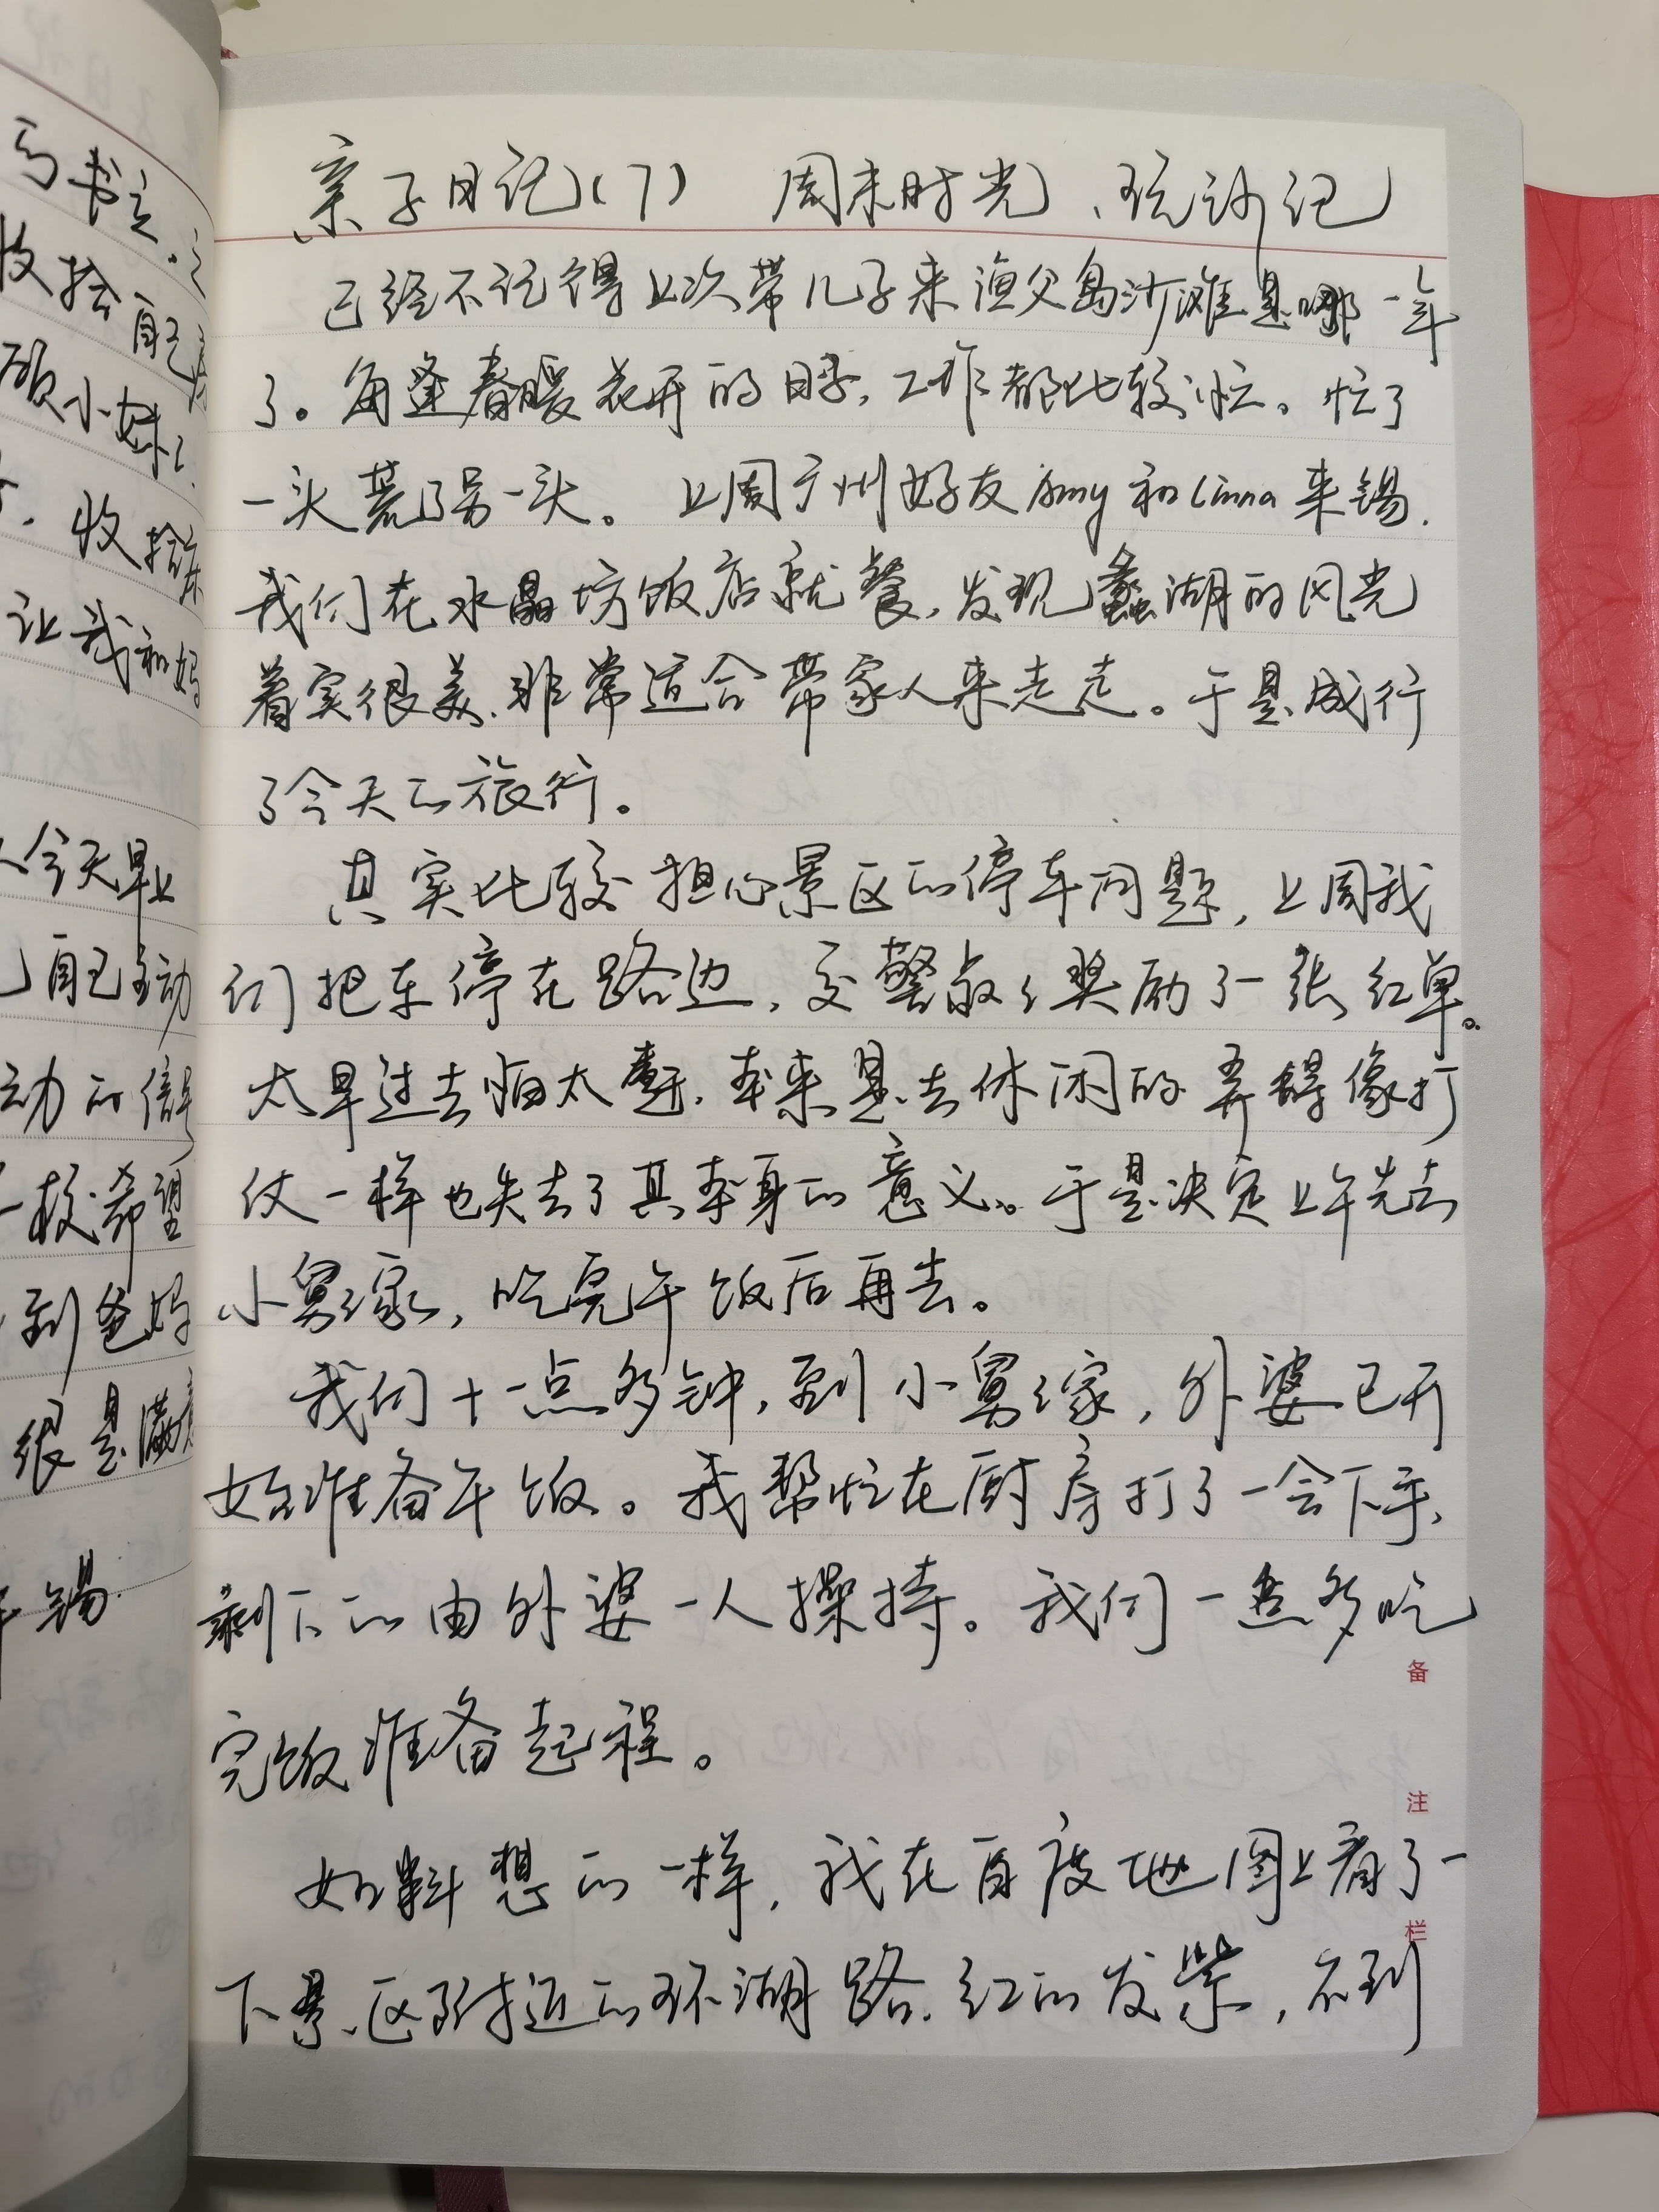 亲子日记(7) 周末时光、玩沙记
已经不记得上次带儿子来渔父岛沙滩是哪一年
了。每逢春暖花开的日子,工作都比较忙。忙了
一头荒了另一头。上周广州好友Amy和Linna来锡.
我们在水晶坊饭店就餐,发现蠡湖的风光
着实很美.非常适合带家人来走走。于是成行
了今天的旅行。
其实比较担心景区的停车问题,上周我
们把车停在路边,交警叔叔奖励了一张红单。
太早过去怕太赶.本来是去休闲的弄得像打
仗一样也失去了其本身的意义。于是决定上午先去
小舅家,吃完午饭后再去。
我们十一点多钟,到小舅家,外婆已开
始准备午饭。我帮忙在厨房打了一会下手,
剩下的由外婆一人操持。我们一点多吃
完饭准备起程。
如料想的一样,我在百度地图上看了一
下景区附近的环湖路.红的发紫,不到
备
注
栏
收拾自己
小妹
收拾
让我和妈
今天早上
自己主动
希望
到爸妈
很是满意
锡.